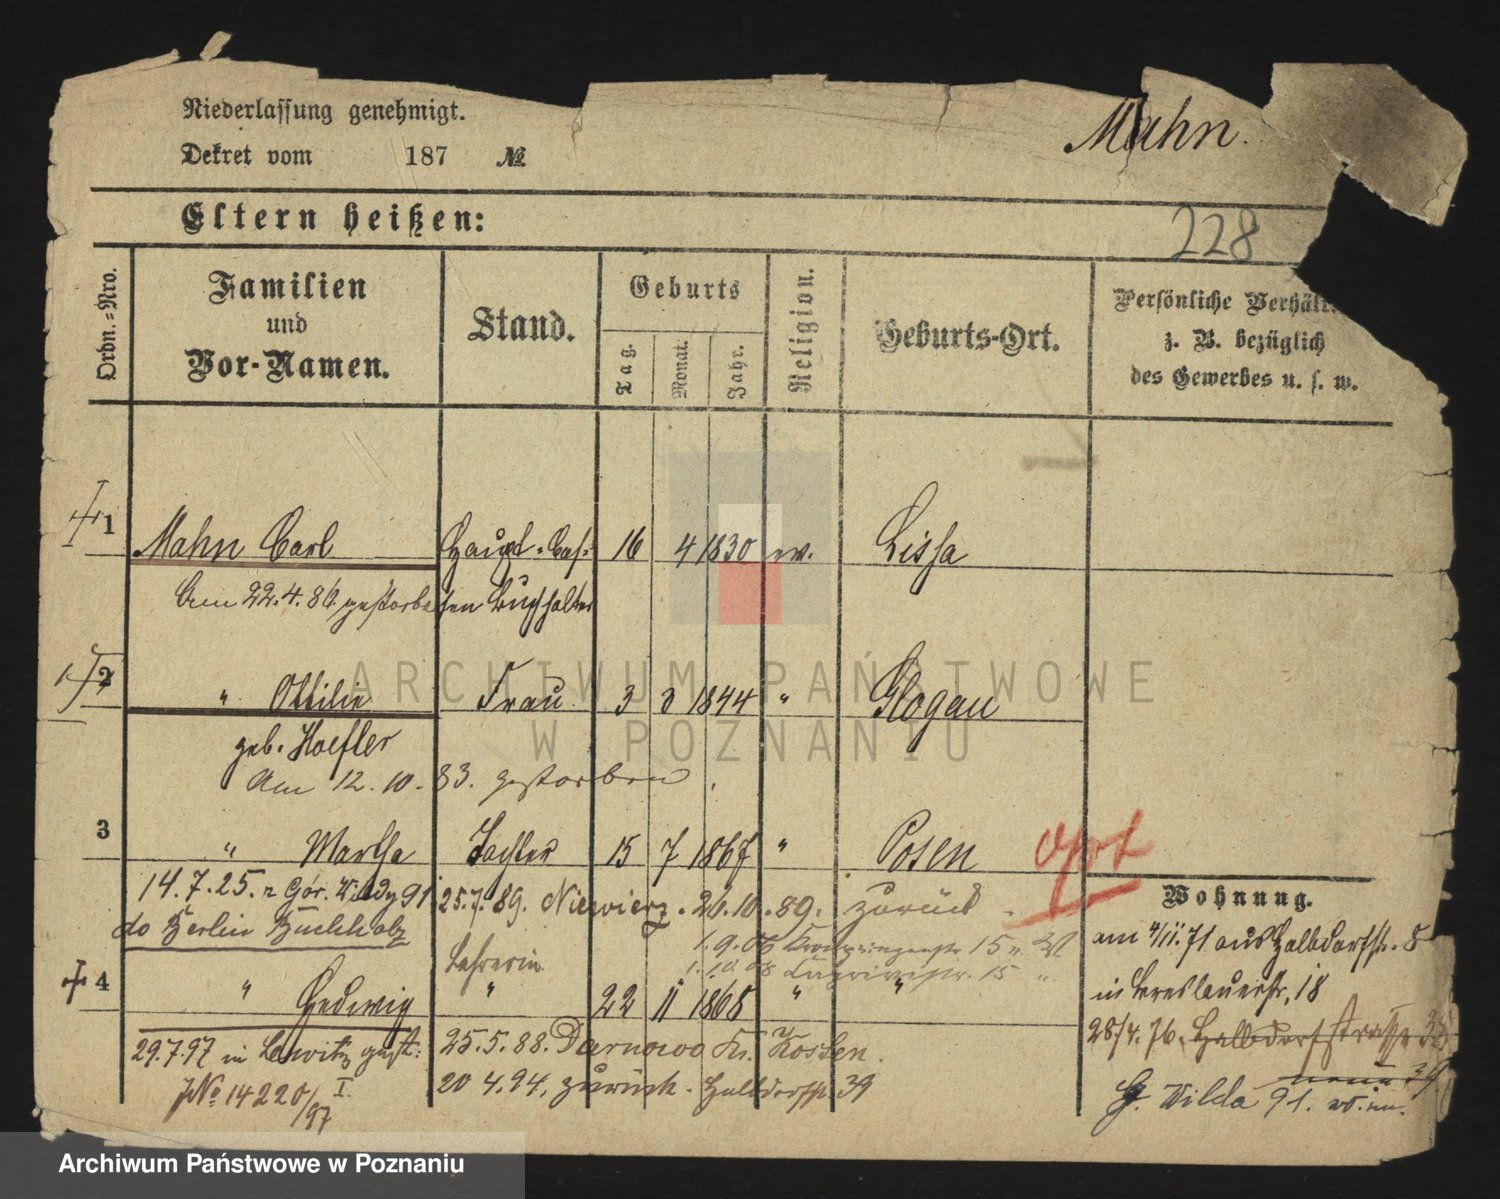 Niederlassung genehmigt.
Mahn.
Dekret vom 187 №
Eltern heißen:
228
Ordn.=Nro.
Familien
und
Vor-Namen.
Stand.
Geburts
Tag.
Monat.
Jahr.
Religion.
Geburts-Ort.
Persönliche Verhält
z. B. bezüglich
des Gewerbes u. s. w.
1 Mahn Carl Haupt-Cas- 16 4 1830 ev. Lissa
Am 22.4.86. gestorben sen Buchhalter
2 " Ottilie Frau 3 3 1844 " Glogau
geb. Hoefler
Am 12.10.83. gestorben
3 " Martha Tochter 15 7 1867 " Posen
14.7.25. n Gór. Wildy 91 25.7.89. Niewierz. 26.10.89. zurück
do Berlin Buchholz
Lehrerin
1.9.06 Kronprinzenstr. 15
15 "
4 " Hedwig " 22 11 1868 " "
29.7.97 in gest.
25.5.88. Darnowo Kr. Kosten.
J№ 14220/97 I.
20 4.94. zurück. Halbdorfstr. 39
Wohnung.
am 4/11.71 aus Halbdorfstr. 8
in Breslauerstr. 18
28/4.76. Halbdorfstrasse
neue 39
G. Wilda 91.
ARCHIWUM PAŃSTWOWE
W POZNANIU
Archiwum Państwowe w Poznaniu